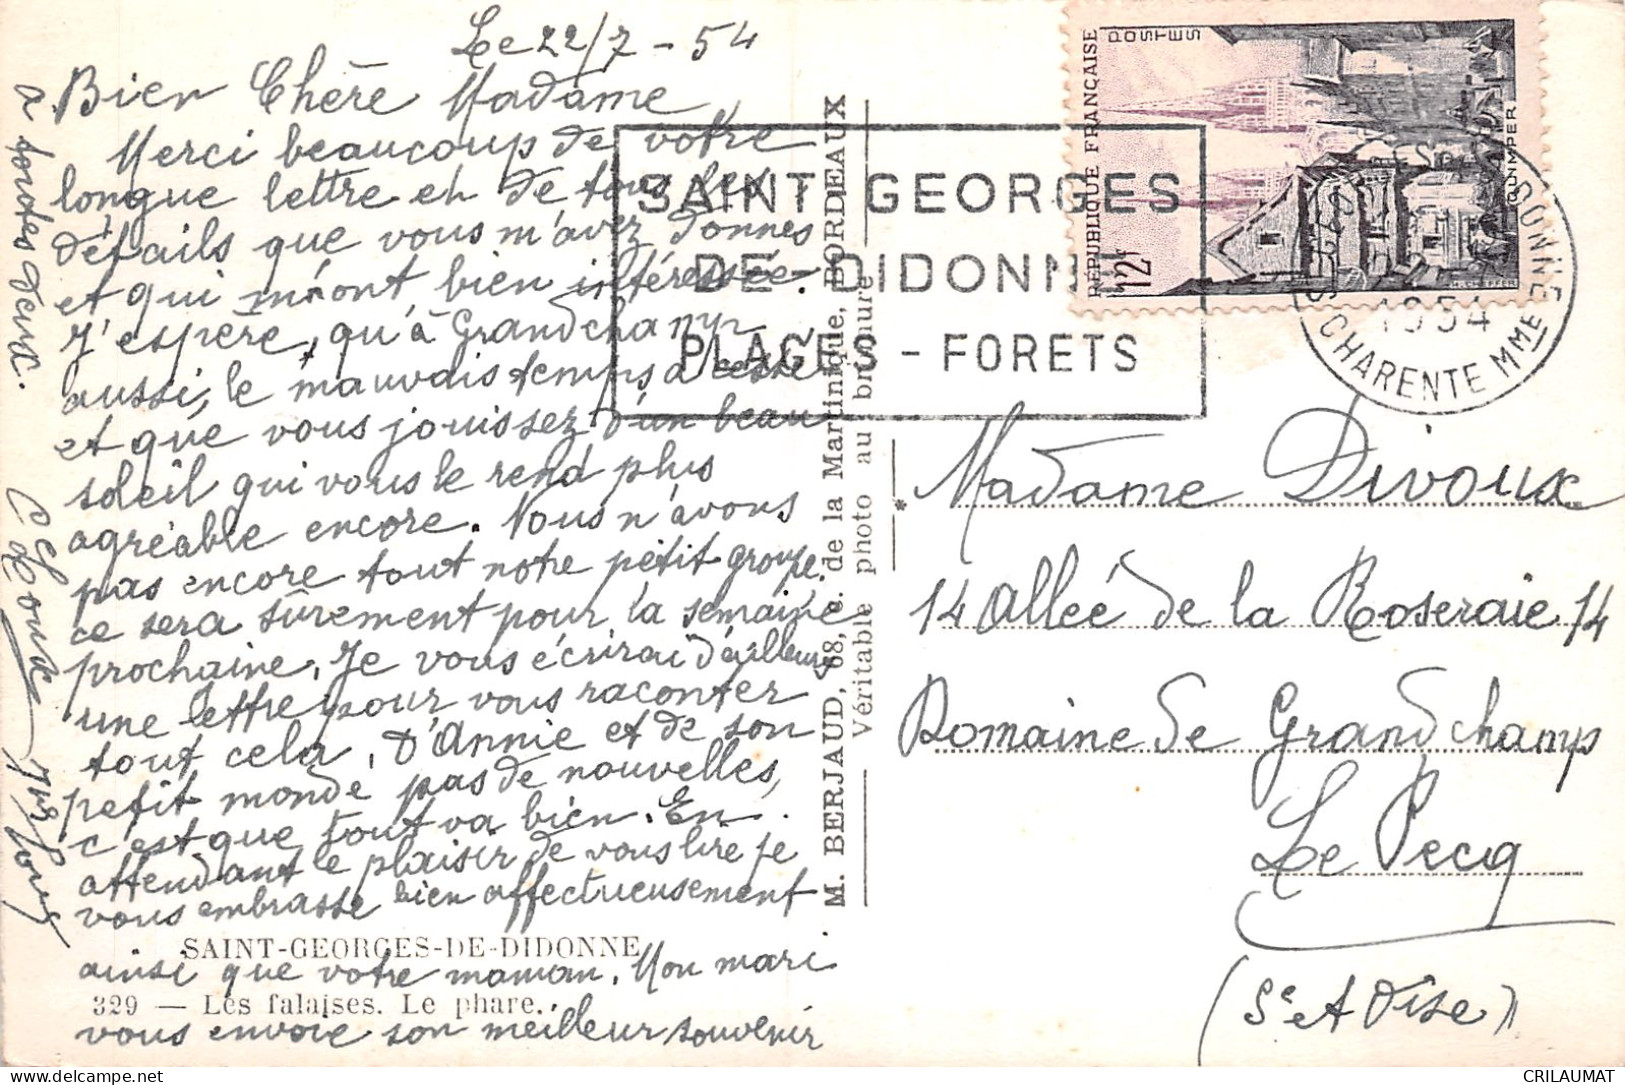 Le 22/7 - 54
Bien Chère Madame
Merci beaucoup de votre
longue lettre et de tous les
détails que vous m'avez donnés
et qui m'ont bien intéressée.
J'espère, qu'à Grandchamp
aussi, le mauvais temps a cessé
et que vous jouissez d'un beau
soleil qui vous le rend plus
agréable encore. Nous n'avons
pas encore tout notre petit groupe.
ce sera sûrement pour la semaine
prochaine. Je vous écrirai d'ailleurs
une lettre pour vous raconter
tout cela, d'Annie et de son
petit monde pas de nouvelles,
c'est que tout va bien. En
attendant le plaisir de vous lire je
vous embrasse bien affectueusement
SAINT-GEORGES-DE-DIDONNE
ainsi que votre maman. Mon mari
329 — Les falaises. Le phare.
vous envoie son meilleur souvenir
à toutes deux.
M. BERJAUD, 68, r. de la Martinique, BORDEAUX
Véritable photo au bromure
*
SAINT-GEORGES
DE-DIDONNE
PLAGES - FORETS
POSTES
RÉPUBLIQUE FRANÇAISE
12F
QUIMPER
1954
CHARENTE MME
Madame Divoux
14 Allée de la Roseraie 14
Domaine de Grandchamp
Le Pecq
(Se et Oise)
CRILAUMAT